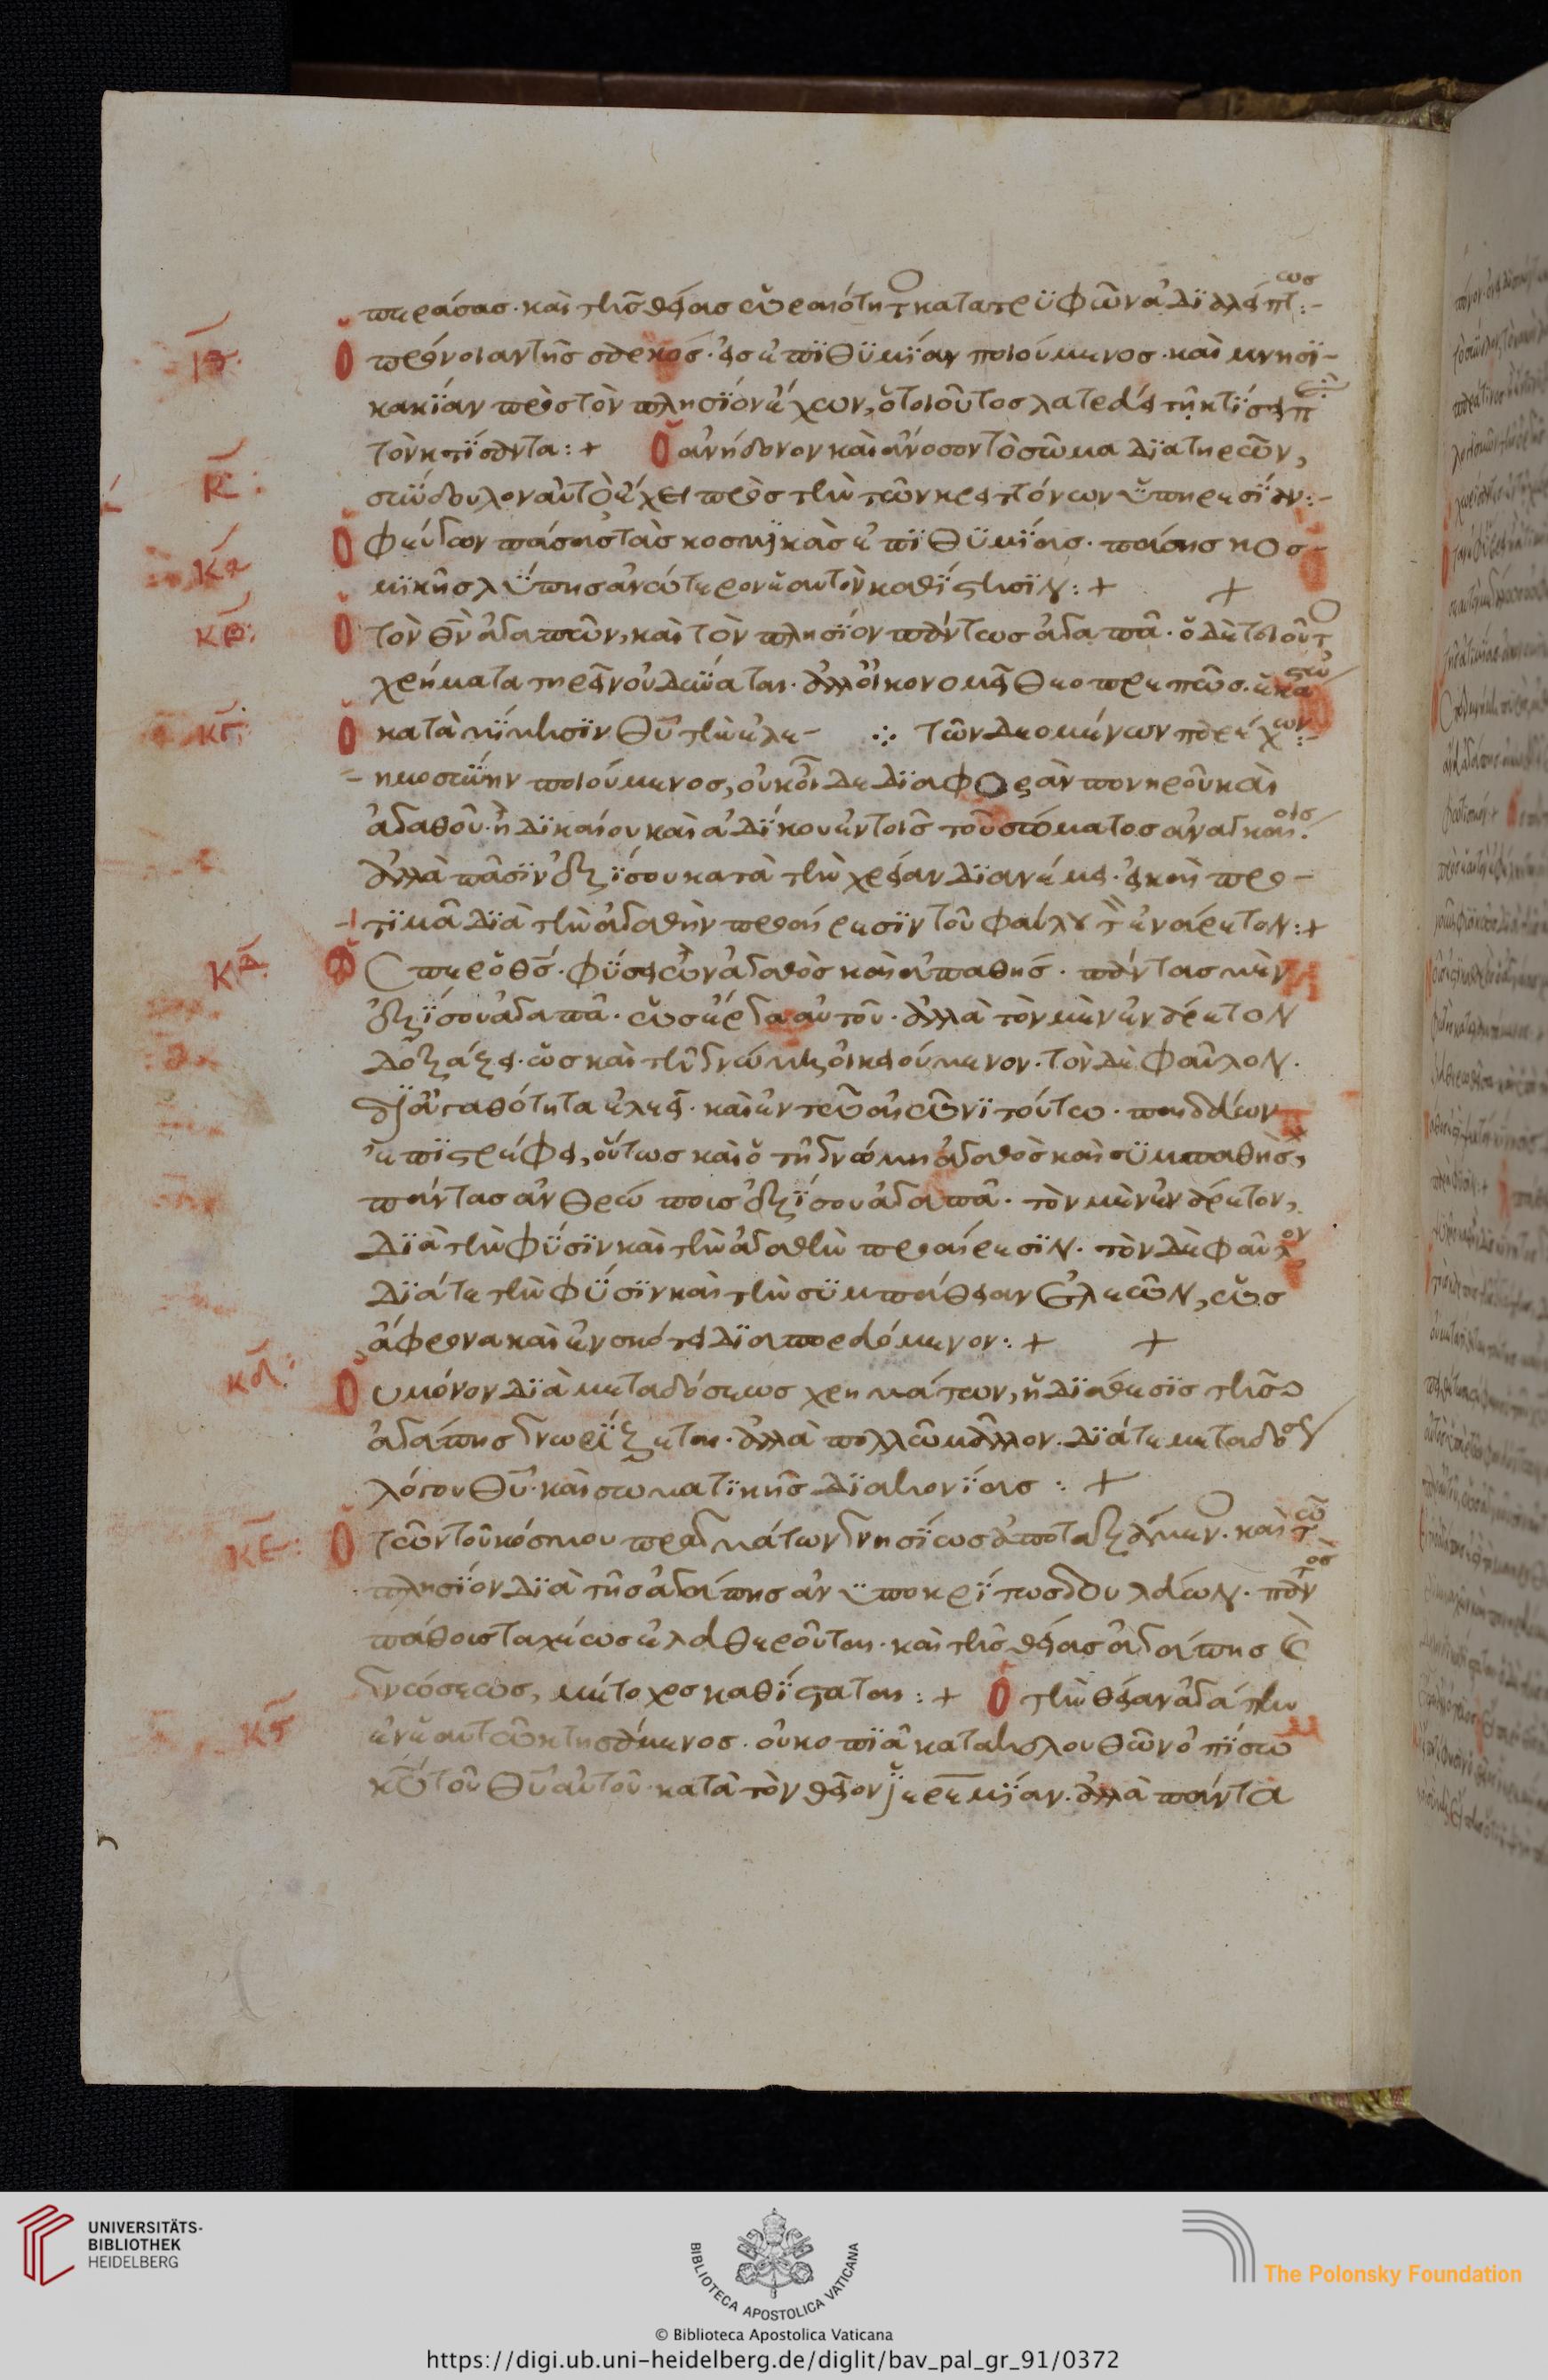 περάσας· καὶ τῆς θείας ὡραιότητος κατατρυφῶν ἀδιαλείπτως:-
ΙΘ Ὁ πρόνοιαν τῆς σαρκός· εἰς ἐπιθυμίαν ποιούμενος· καὶ μνησι-
κακίαν πρὸς τὸν πλησίον ἔχων, ὁ τοιοῦτος λατρεύει τῇ κτίσει παρὰ
τὸν κτίσαντα:+ Ὁ ἀνήδονον καὶ ἄνοσον τὸ σῶμα διατηρῶν,
Κ: σύνδουλον αὐτὸ ἔχει πρὸς τὴν τῶν κρειττόνων ὑπηρεσίαν:-
ΚΑ Ὁ φεύγων πάσας τὰς κοσμικὰς ἐπιθυμίας· πάσης κοσ-
μικῆς λύπης ἀνώτερον ἑαυτὸν καθίστησιν:+ +
ΚΒ: Ὁ τὸν θν ἀγαπῶν, καὶ τὸν πλησίον πάντως ἀγαπᾶ· ὁ δὲ τοιοῦτος
χρήματα τηρεῖν οὐ δύναται· ἀλλ' οἰκονομεῖ θεοπρεπῶς· ἑκάστω
ΚΓ: Ὁ κατὰ μίμησιν θυ τὴν ἐλε- ∴ τῶν δεομένων παρέχων:-
ημοσύνην ποιούμενος, οὐκ οἶδε διαφορὰν πονηροῦ καὶ
ἀγαθοῦ· ἢ δικαίου καὶ ἀδίκου ἐν τοῖς τοῦ σώματος ἀναγκαίοις·
ἀλλὰ πᾶσιν ἐξίσου κατὰ τὴν χρείαν διανέμει· εἰ καὶ προ-
τιμᾶ διὰ τὴν ἀγαθὴν προαίρεσιν τοῦ φαύλου τὸν ἐνάρετον:+
ΚΔ: Ὥσπερ ὁ θς· φύσει ὢν ἀγαθὸς καὶ ἀπαθής· πάντας μὲν
ἐξίσου ἀγαπᾶ· ὡς ἔργα αὐτοῦ· ἀλλὰ τὸν μὲν ἐνάρετον
δοξάζει· ὡς καὶ τῆ γνώμη οἰκειούμενον· τὸν δὲ φαῦλον·
δι' ἀγαθότητα ἐλεεῖ· καὶ ἐν τῶ αἰῶνι τούτω· παιδεύων
ἐπιστρέφει, οὕτως καὶ ὁ τῆ γνώμη ἀγαθὸς καὶ συμπαθής,
πάντας ἀνθρώποις ἐξίσου ἀγαπᾶ· τὸν μὲν ἐνάρετον,
διὰ τὴν φύσιν καὶ τὴν ἀγαθὴν προαίρεσιν· τὸν δὲ φαῦλον
διά τε τὴν φύσιν καὶ τὴν συμπάθειαν ἐλεῶν, ὡς
ἄφρονα καὶ ἐν σκότει διαπορευόμενον:+ +
ΚΔ: Οὐ μόνον διὰ μεταδόσεως χρημάτων, ἡ διάθεσις τῆς
ἀγάπης γνωρίζεται· ἀλλὰ πολλῶ μᾶλλον· διά τε μεταδόσεως
λόγου θυ· καὶ σωματικῆς διακονίας:+
ΚΕ: Ὁ τῶν τοῦ κόσμου πραγμάτων γνησίως ἀποταξάμενος· καὶ τῶ
πλησίον διὰ τῆς ἀγάπης ἀνυποκρίτως δουλεύων· παντὸς
πάθοις ταχέως ἐλευθεροῦται· καὶ τῆς θείας ἀγάπης καὶ
γνώσεως, μέτοχος καθίσταται:+ Ὁ τὴν θείαν ἀγάπην
ΚϚ ἐν ἑαυτῶ κτησάμενος· οὐ κοπιᾶ κατακολουθῶν ὀπίσω
κυ τοῦ θυ αὐτοῦ· κατὰ τὸν θεῖον ἱερεμίαν· ἀλλὰ πάντα
UNIVERSITÄTS-
BIBLIOTHEK
HEIDELBERG
BIBLIOTECA APOSTOLICA VATICANA
The Polonsky Foundation
© Biblioteca Apostolica Vaticana
https://digi.ub.uni-heidelberg.de/diglit/bav_pal_gr_91/0372